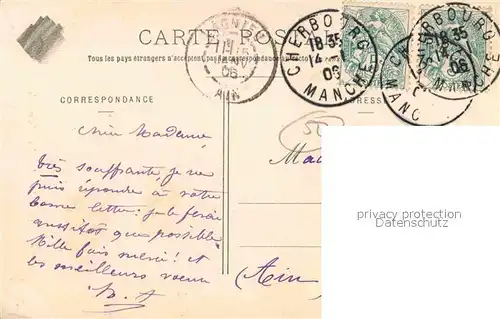 CARTE POS
Tous les pays étrangers n'acceptent pas
CORRESPONDANCE
ADRESSE
LAGNIEU
06
AIN
CHERBOURG
18 35
14
06
MANCHE
CHERBOURG
18 35
06
MANCHE
MANC
50
Chère Madame,
Très souffrante, je ne
puis répondre à votre
bonne lettre: je le ferai
aussitôt que possible.
Mille fois merci! et
les meilleurs vœux
Mad
(Ain
privacy protection
Datenschutz